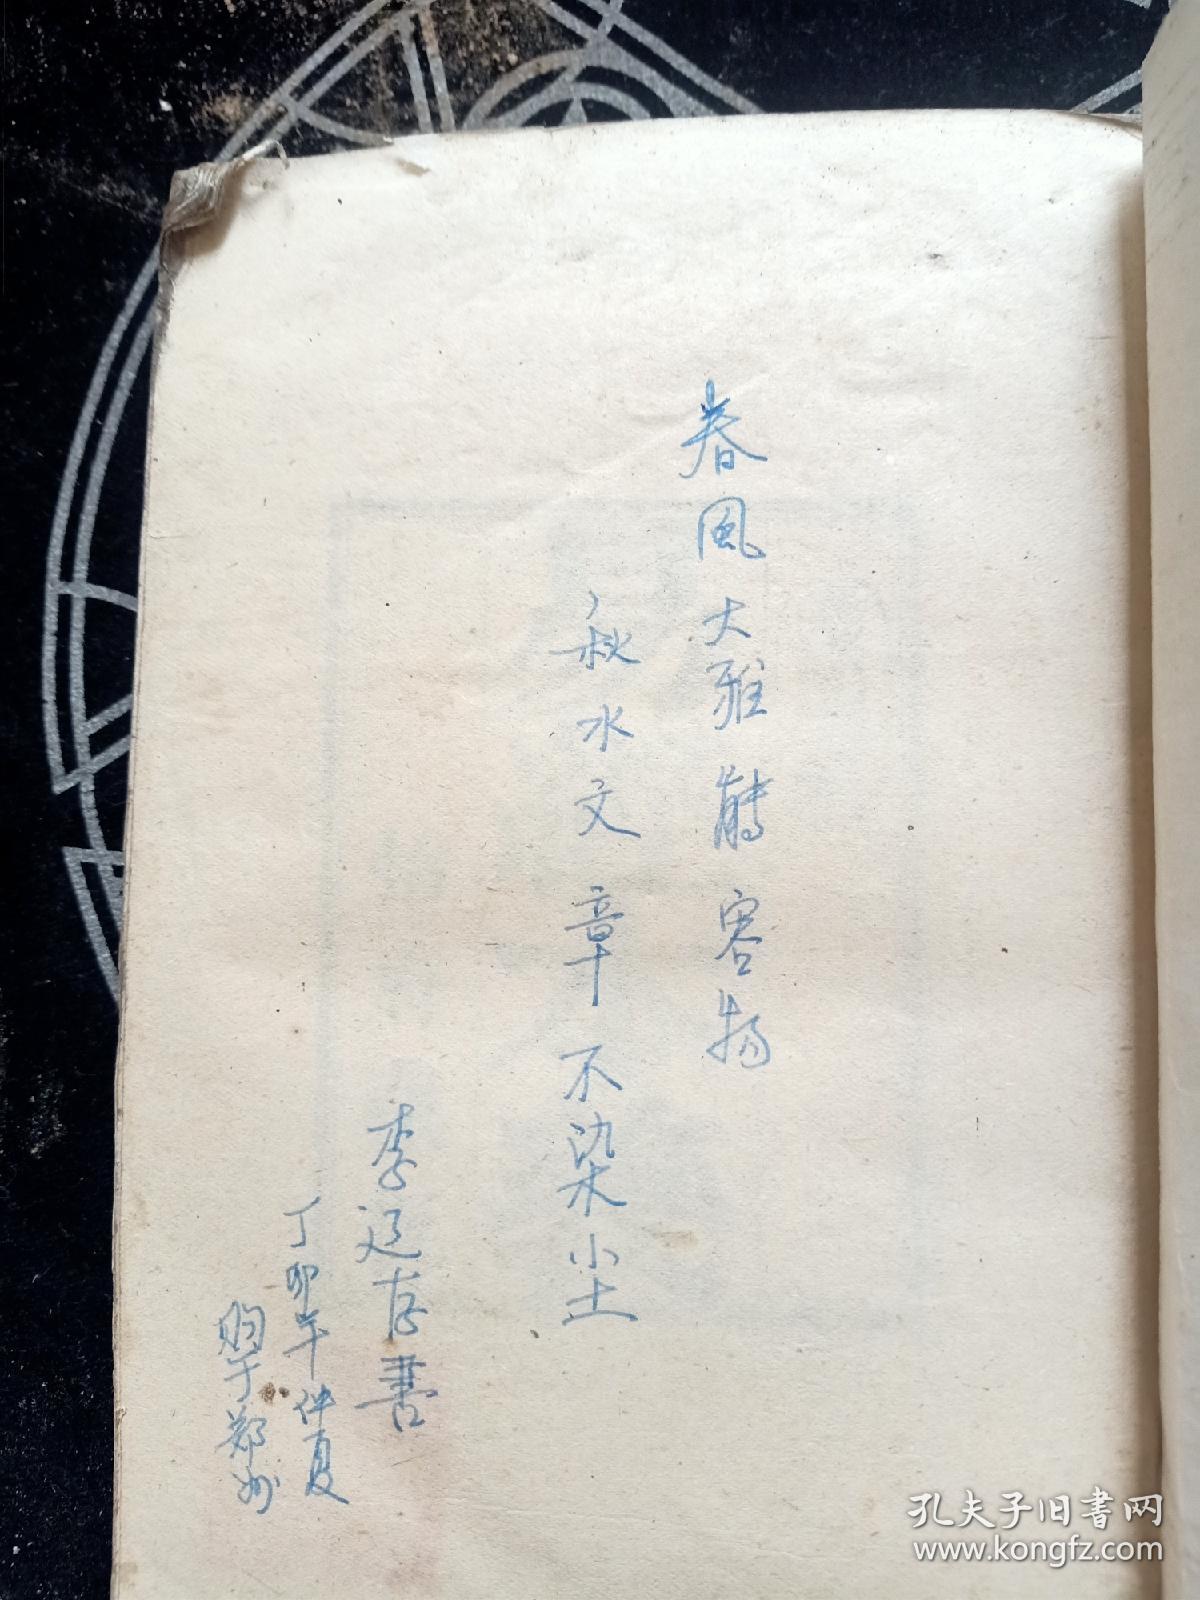 春風大雅能容物
秋水文章不染尘
李延存書
丁卯年仲夏
购于郑州
孔夫子旧书网
www.kongfz.com